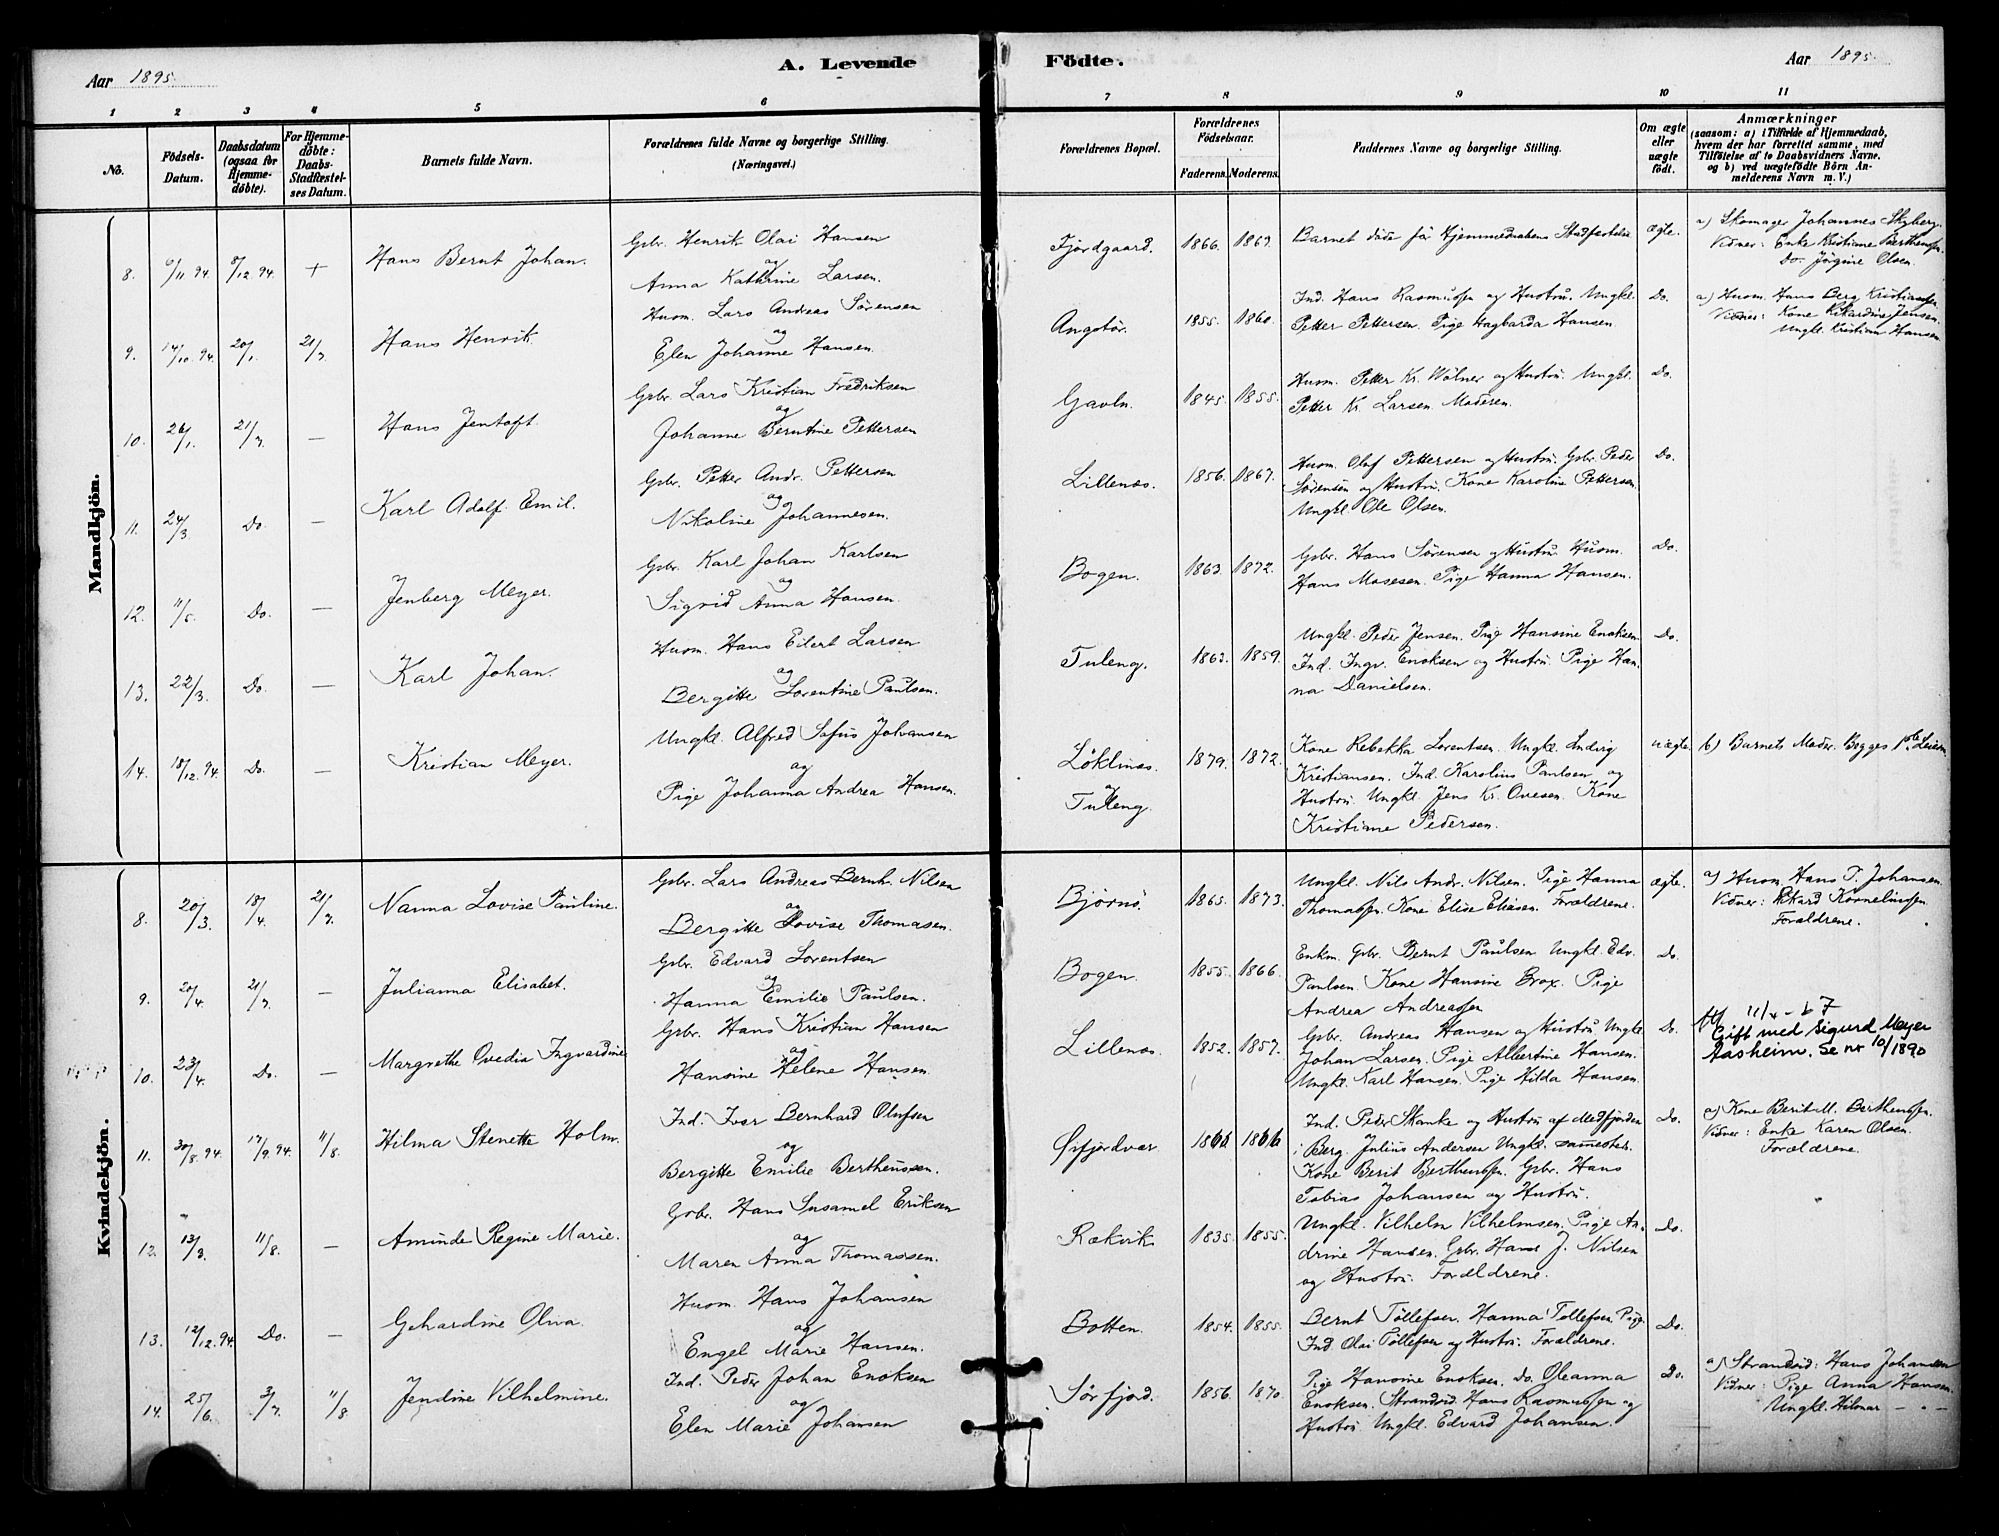 Aar 1895.
A. Levende Födte.
Aar 1895.
1 2 3 4 5 6 7 8 9 10 11
No.
Födsels-Datum.
Daabsdatum (ogsaa for Hjemme-döbte).
For Hjemme-döbte: Daabs-Stadfæstel-ses Datum.
Barnets fulde Navn.
Forældrenes fulde Navne og borgerlige Stilling.
(Næringsvei.)
Forældrenes Bopæl.
Forældrenes Födselsaar.
Faderens. Moderens.
Faddernes Navne og borgerlige Stilling.
Om ægte eller uægte födt.
Anmærkninger
(saasom: a) i Tilfælde af Hjemmedaab,
hvem der har forrettet samme, med
Tilföielse af to Daabsvidners Navne,
og b) ved uægtefödte Börn An-
melderens Navn m. V.)
Mandkjön.
8. 6/11 94. 8/12 94. + Hans Bernt Johan.
Gbr. Henrik Olai Hansen
og
Anna Kathrine Larsen.
Fjordgaard. 1866. 1867.
Barnet döde för Hjemmedaabens Stadfæstelse
ægte.
a) Skomager Johannes Skyberg.
Vidner: Enke Kristiane Berthensen.
Do. Jörgine Olsen.
9. 14/10 94. 20/1. 21/7. Hans Henrik.
Husm. Lars Andreas Sörensen
og
Elen Johanne Hansen.
Angstör. 1855. 1860.
Ind. Hans Rasmussen og Hustru. Ungkl.
Petter Pettersen. Pige Hagbarda Hansen.
Do.
a) Husm. Hans Berg Kristiansen.
Vidner: Kone Rikardine Jensen.
Ungkl. Kristian Hansen.
10. 26/1. 21/7. — Hans Jentoft.
Gbr. Lars Kristian Fredriksen
og
Johanne Berntine Pettersen
Gavln. 1845. 1855.
Husm. Petter Kr. Wölner og Hustru. Ungkl.
Petter Kr. Larsen. Moderen.
Do.
11. 24/3 Do. — Karl Adolf Emil.
Gbr. Petter Andr. Pettersen
og
Nikoline Johannesen.
Lillenæs. 1856. 1867.
Husm. Oluf Pettersen og Hustru. Gbr. Peder
Sörensen og Hustru. Kone Karoline Pettersen.
Ungkl. Ole Olsen.
Do.
12. 11/5. Do. — Jenberg Meyer.
Gbr. Karl Johan Karlsen
og
Sigrid Anna Hansen.
Bogen. 1863. 1872.
Gbr. Hans Sörensen og Hustru. Husm.
Hans Mosesen. Pige Hanna Hansen.
Do.
13. 22/3. Do. — Karl Johan.
Husm. Hans Eilert Larsen
og
Bergitte Lorentine Paulsen.
Tuleng. 1863. 1859.
Ungkl. Peder Jensen. Pige Hansine Enoksen.
Ind. Ingv. Enoksen og Hustru. Pige Han-
na Danielsen.
Do.
14. 18/12 94. Do. — Kristian Meyer.
Ungkl. Alfred Sofus Johansen
og
Pige Johanna Andrea Hansen.
Löklinæs.
og
Tuleng.
1879. 1872.
Kone Rebekka Lorentsen. Ungkl. Ludvig
Kristiansen. Ind. Karolius Paulsen og
Hustru. Ungkl. Jens Kr. Ovesen. Kone
Kristiane Pedersen.
uægte.
b) Barnets Moder. Begges 1ste Leierm.
Kvindekjön.
8. 20/3. 18/4. 21/7. Nanna Lovise Pauline.
Gbr. Lars Andreas Bernh. Nilsen
og
Bergitte Lovise Thomasen.
Björnö. 1865. 1873.
Ungkl. Nils Andr. Nilsen. Pige Hanna
Thomassen. Kone Elise Eliasen. Forældrene.
ægte.
a) Husm. Hans T. Johansen.
Vidner: Rikard Kornelinssen.
Forældrene.
9. 20/4. 21/7. — Julianna Elisabet.
Gbr. Edvard Lorentsen
og
Hanna Emilie Paulsen.
Bogen. 1855. 1866.
Enkm. Gbr. Bernt Paulsen Ungkl. Edv.
Paulsen. Kone Hansine Brox. Pige
Andrea Andreassen
Do.
10. 23/4. Do. — Margrethe Ovedia Ingvardine
Gbr. Hans Kristian Hansen
og
Hansine Helene Hansen.
Lillenæs. 1852. 1857.
Gbr. Andreas Hansen og Hustru Ungkl.
Johan Larsen. Pige Albertine Hansen.
Ungkl. Karl Hansen. Pige Hilda Hansen.
Do.
Gift med Sigurd Meyer
Aasheim. Se nr 10/1890
11. 30/8. 94. 17/9. 94. 11/8. Hilma Stenette Holm.
Ind. Iver Bernhard Olufsen
og
Bergitte Emilie Berthenssen.
Örfjordvær 1866 1866
Ind. Peder Skanke og Hustru af Medfjorden
i Berg. Julius Andersen Ungkl. samesteds.
Kone Berit Berthenssen. Gbr. Hans
Tobias Johansen og Hustru.
Do.
a) Kone Berit M. Berthenssen.
Vidner: Enke Karen Olsen.
Forældrene.
12. 13/3. 11/8. — Aminde Regine Marie.
Gbr. Hans Susamel Eriksen
og
Maren Anna Thomassen.
Rækvik 1835. 1855.
Ungkl. Vilhelm Vilhelmsen. Pige An-
drine Hansen. Gbr. Hans J. Nilsen
og Hustru. Forældrene.
Do.
13. 12/12. 94. Do. — Gehardine Oliva.
Husm. Hans Johansen
og
Engel Marie Hansen.
Botten. 1854. 1855.
Bernt Töllefsen. Hanna Tollefsen Pige.
Ind Olai Töllefsen og Hustru. Forældrene.
Do.
14. 25/6. 3/7. 11/8 Jendine Vilhelmine.
Ind. Peder Johan Enoksen
og
Elen Marie Johansen
Sörfjord. 1856. 1870.
Pige Hansine Enoksen. Do. Oleanna
Enoksen. Strandsid. Hans Rasmussen og
Hustru. Ungkl. Edvard Johansen.
Do.
a) Strandsid: Hans Johansen
Vidner: Pige Anna Hansen.
Ungkl. Hilmar — " —